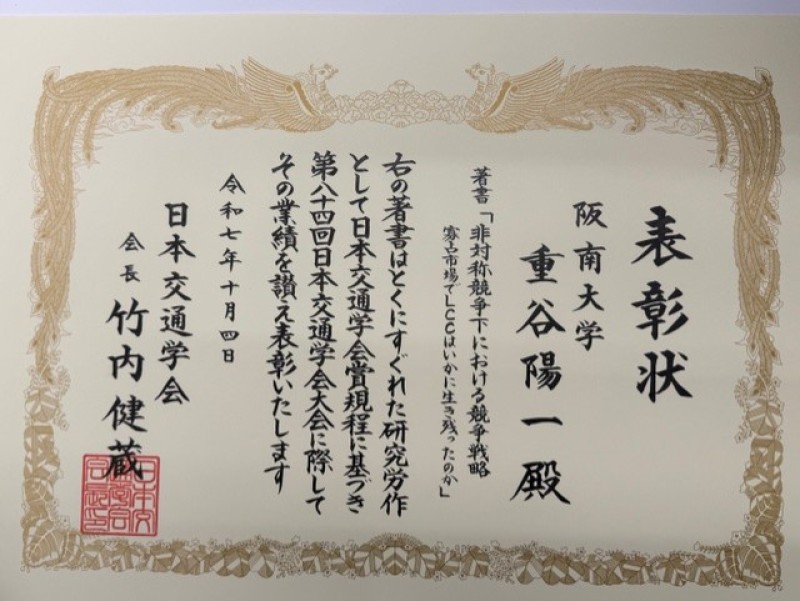 表彰状
阪南大学
重谷陽一殿
著書「非対称競争下における競争戦略
寡占市場でLCCはいかに生き残ったのか」
右の著書はとくにすぐれた研究労作
として日本交通学会賞規程に基づき
第八十四回日本交通学会大会に際して
その業績を讃え表彰いたします
令和七年十月四日
日本交通学会
会長 竹内健蔵